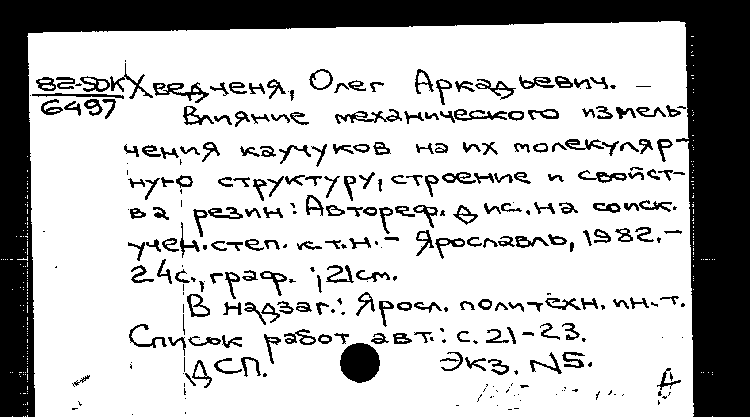 82-5DK Хведченя, Олег Аркадьевич. –
6497 Влияние механического измель-
чения каучуков на их молекуляр-
ную структуру, строение и свойст-
ва резин: Автореф. дис. на соиск.
учен. степ. к.т.н. – Ярославль, 1982. –
24с., граф. ; 21см.
В надзаг.: Яросл. политехн. ин-т.
Список работ авт.: с. 21-23.
ДСП. Экз. N5.
А